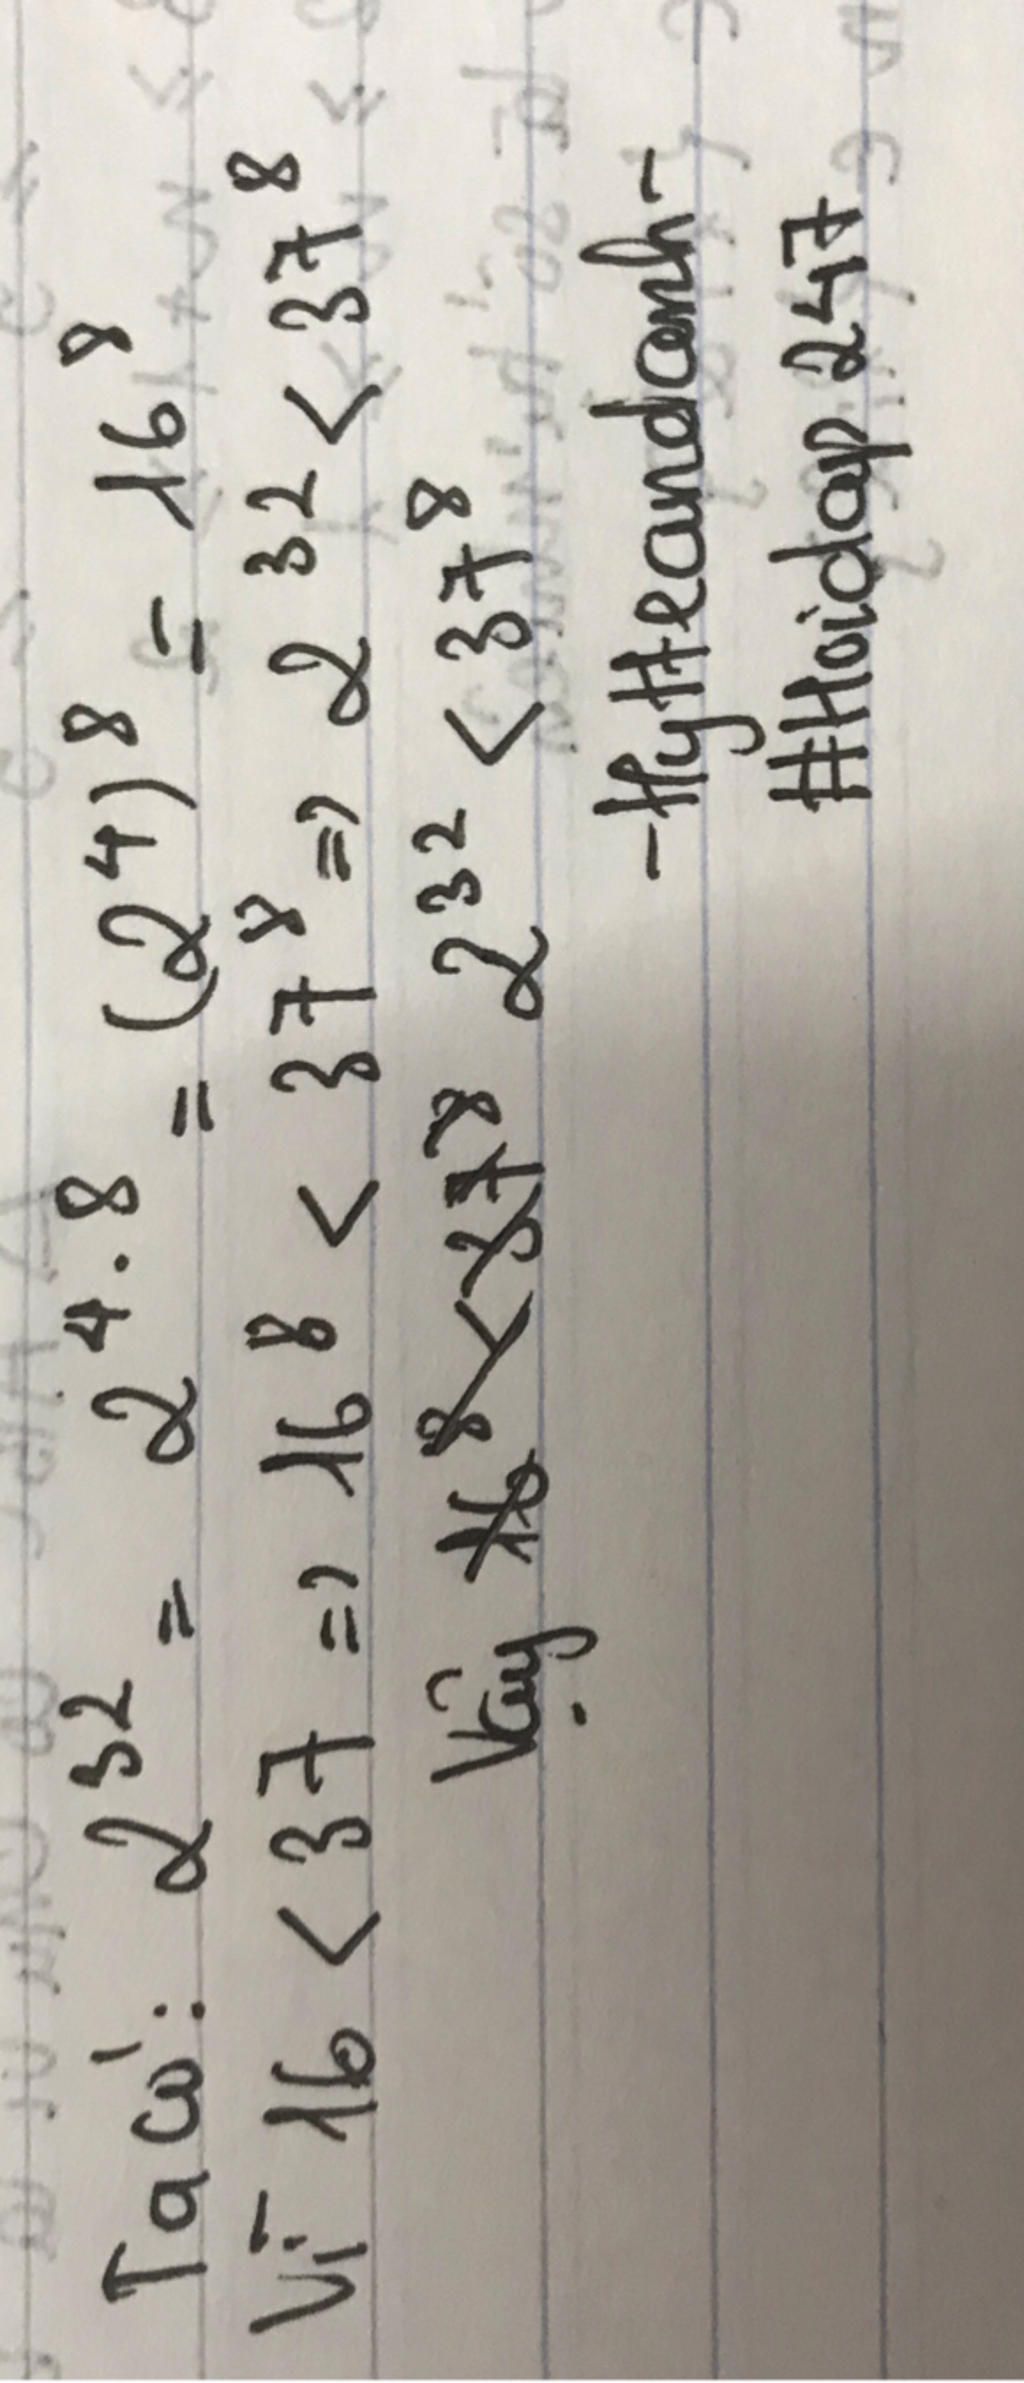 Ta có: 2^32 = 2^4.8 = (2^4)^8 = 16^8
Vì 16 < 37 => 16^8 < 37^8 => 2^32 < 37^8
Vậy 16^8 < 37^8 2^32 < 37^8
-HyHeandanh-
#Hoidap247